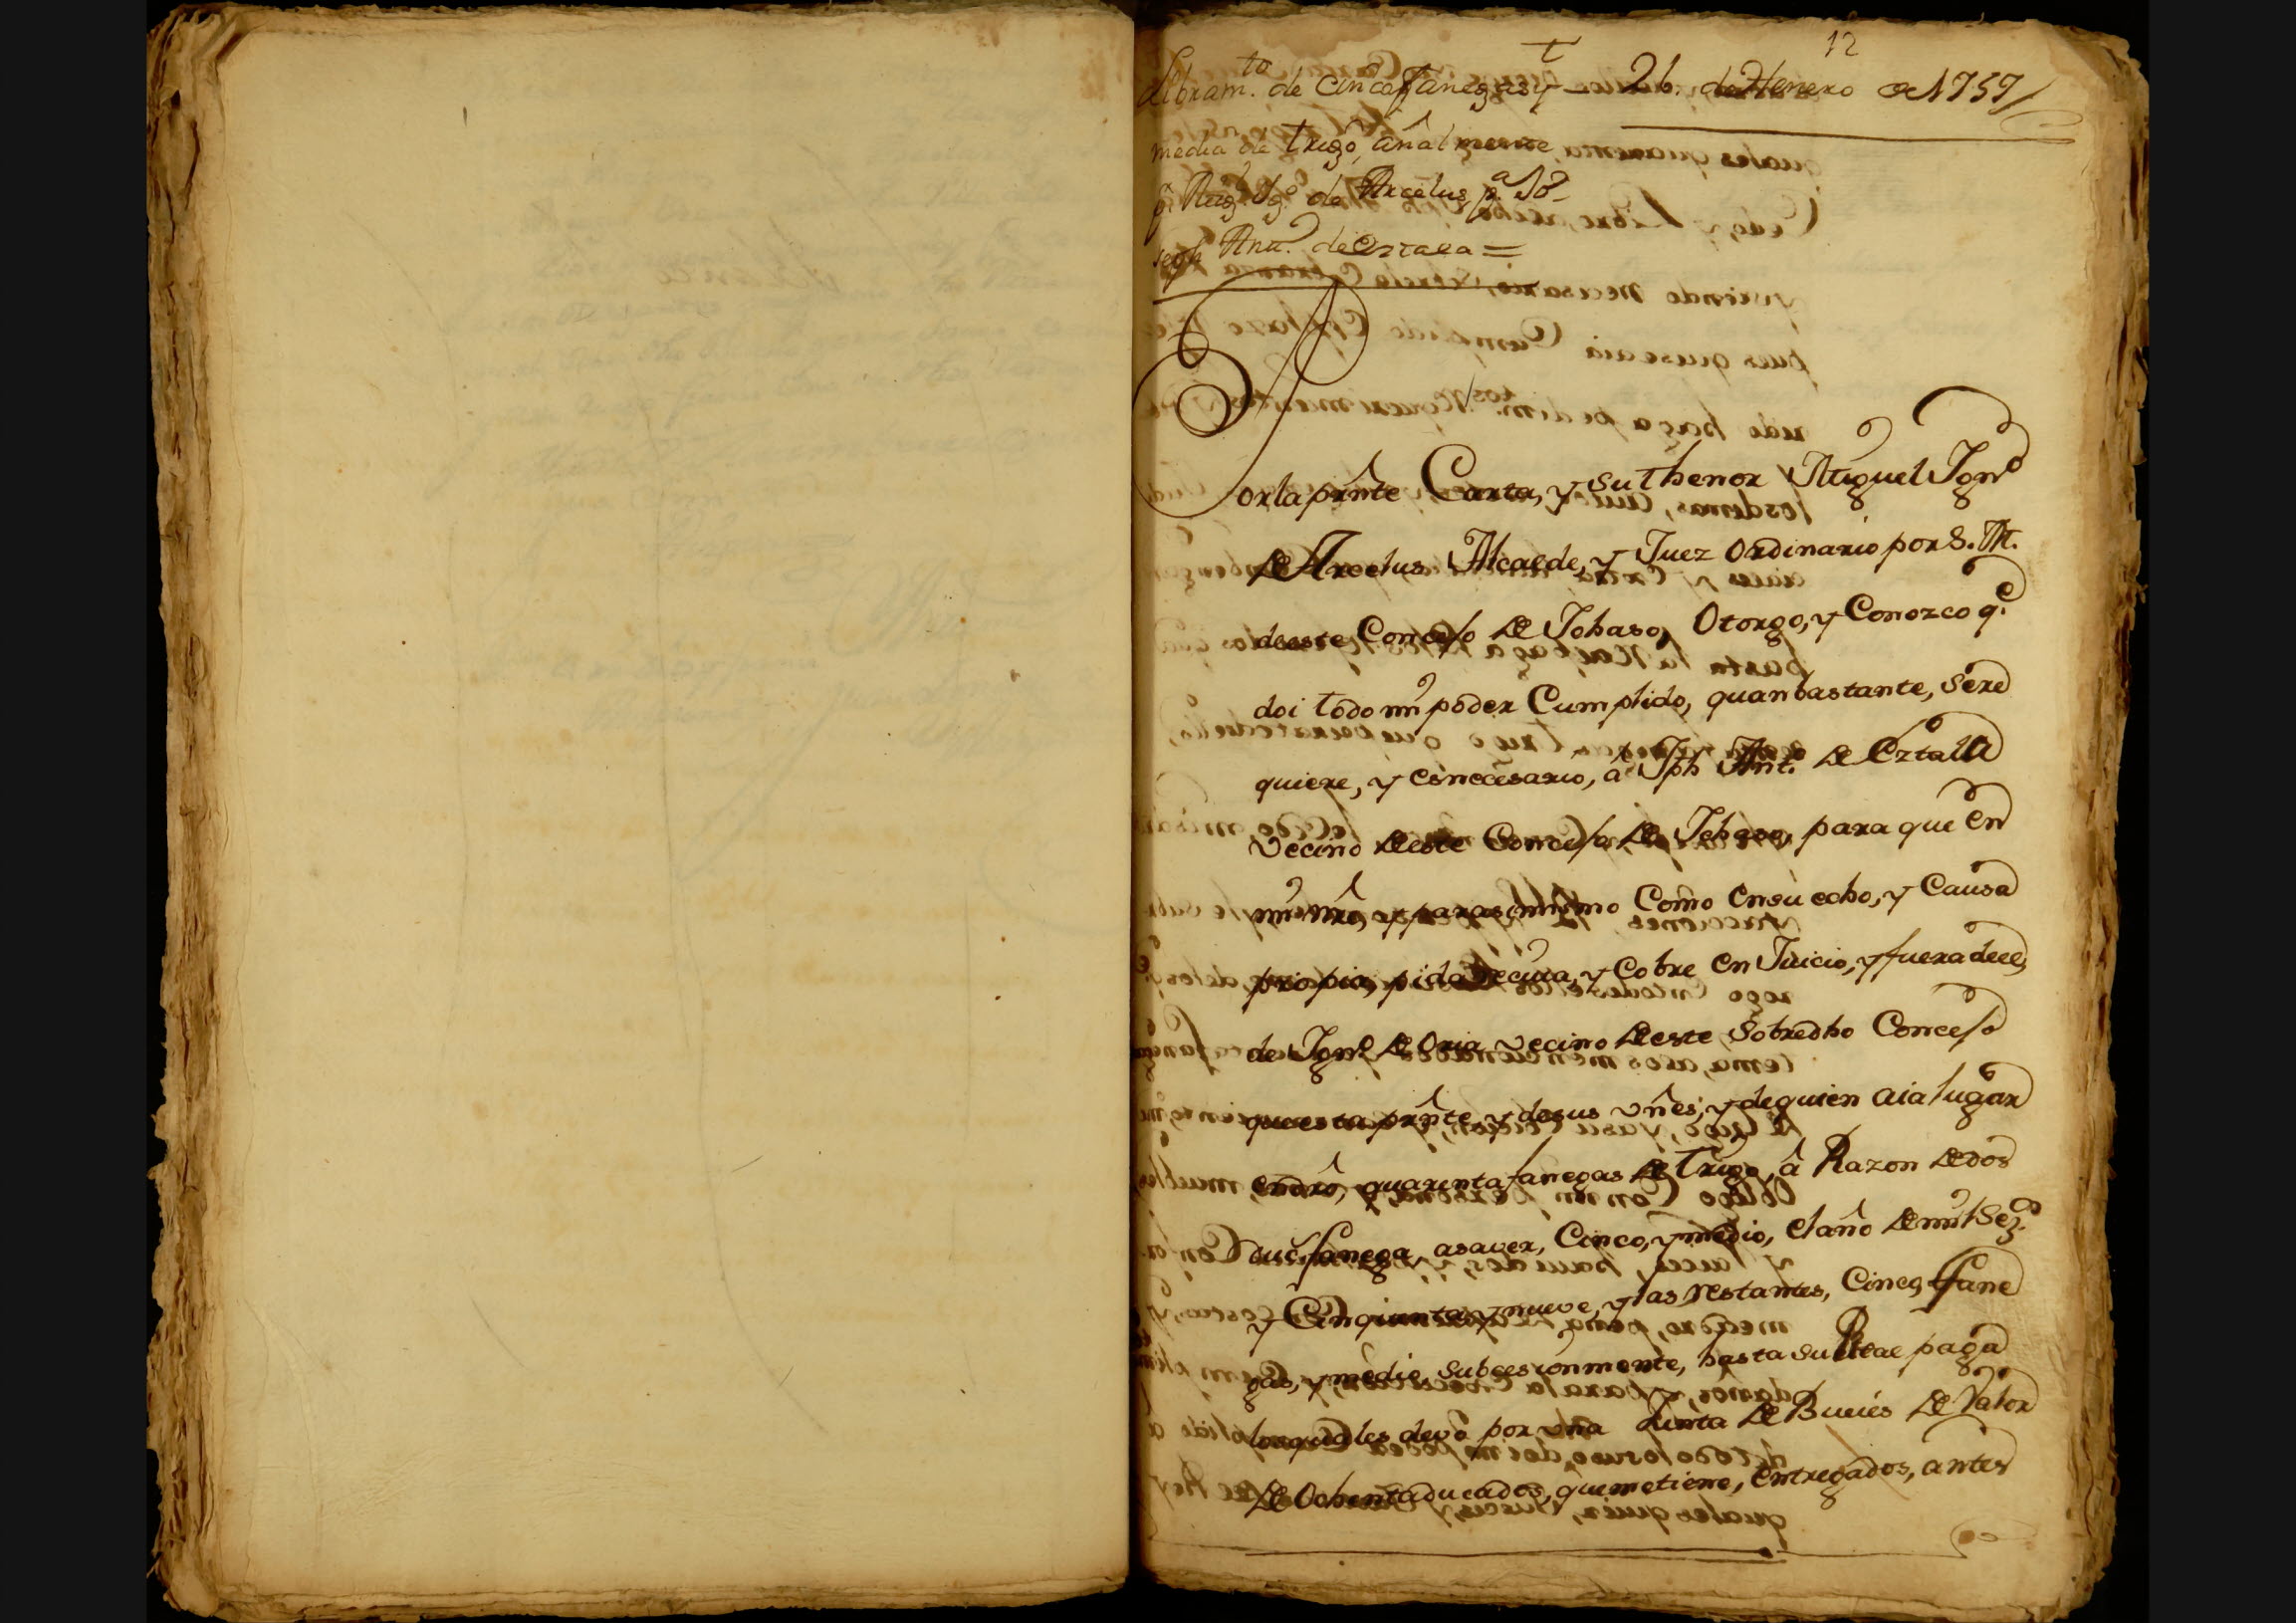 12
t
Libram.to de cinco fanegas y
26. de Henero de 1759
media de trigo, anâlmente
p.r Mig.l Ig.o de Arcelus p.a Jo-
seph Antt.o de Eztala =
Por la prnte Carta, y su thenor Miguel Ign.o
de Arcelus Alcalde, y Juez Ordinario por S. M.
deeste Concejo de Ichaso, Otorgo, y Conozco q.e
doi todo mi poder Cumplido, quan bastante, sere
quiere, y es neccesario, â Jph Ant.o de Eztala
vecino deeste Concejo de Ichaso, para que en
mi nrê, y para si mismo Como en su echo, y Causa
propia, pida recíva, y Cobre en Juicio, y fuera deel,
de Ign.o de Oria vecino deeste Sobredho Concejo
que esta prnte, y de sus vnes, y de quien aia lugar
en dro, quarenta fanegas de Trigo, â Razon de dos
duc.s fanega, asaver, Cinco, y medio, el año de mil Set.s
y Cinquenta, y nueve, y las restantes, Cinco, fane
gas, y medio, Subcesionmente, hasta su Real paga
los quales devo por vna Junta de Bueies de Valor
de Ochenta ducados, que me tiene, entregados, antes